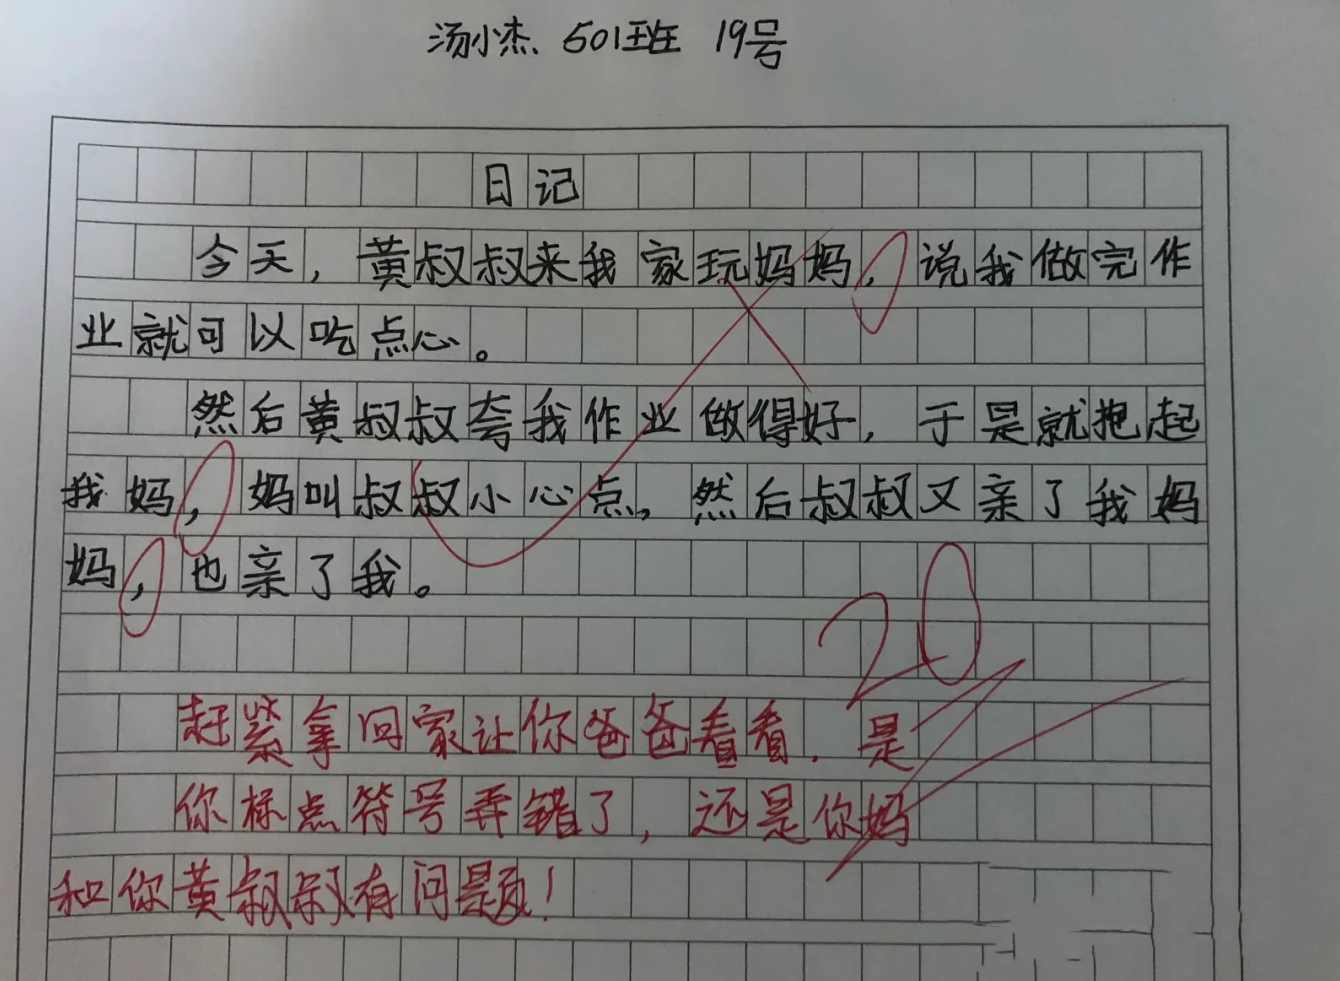 汤小杰 501班 19号
日记
今天,黄叔叔来我家玩妈妈,说我做完作
业就可以吃点心。
然后黄叔叔夸我作业做得好,于是就抱起
我妈,妈叫叔叔小心点,然后叔叔又亲了我妈
妈,也亲了我。
20
赶紧拿回家让你爸爸看看.是
你标点符号弄错了,还是你妈
和你黄叔叔有问题!